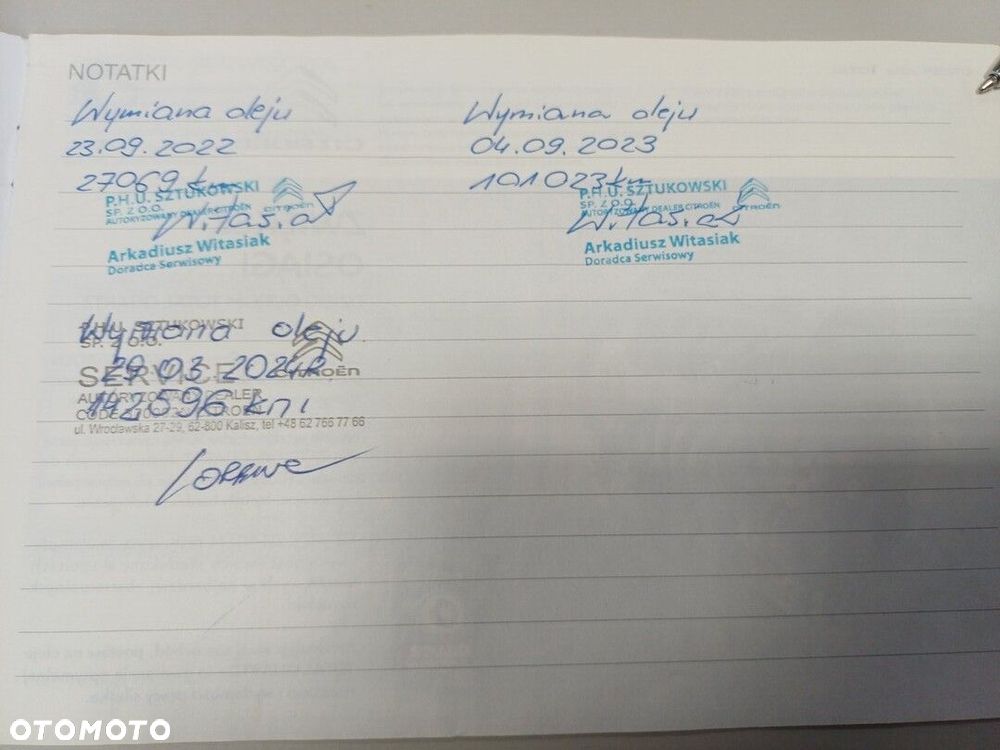 NOTATKI
Wymiana oleju
23.09.2022
27069 km
P.H.U. SZTUKOWSKI
SP. Z O.O.
AUTORYZOWANY DEALER CITROËN
CITROËN
Arkadiusz Witasiak
Doradca Serwisowy
Wymiana oleju
04.09.2023
101023 km
P.H.U. SZTUKOWSKI
SP. Z O.O.
AUTORYZOWANY DEALER CITROËN
CITROËN
Arkadiusz Witasiak
Doradca Serwisowy
Wymiana oleju
P.H.U. SZTUKOWSKI
SP. Z O.O.
29.03.2024R
SERVICE CITROËN
AUTORYZOWANY DEALER
142596 km
ul. Wrocławska 27-29, 62-800 Kalisz, tel +48 62 766 77 66
OTOMOTO